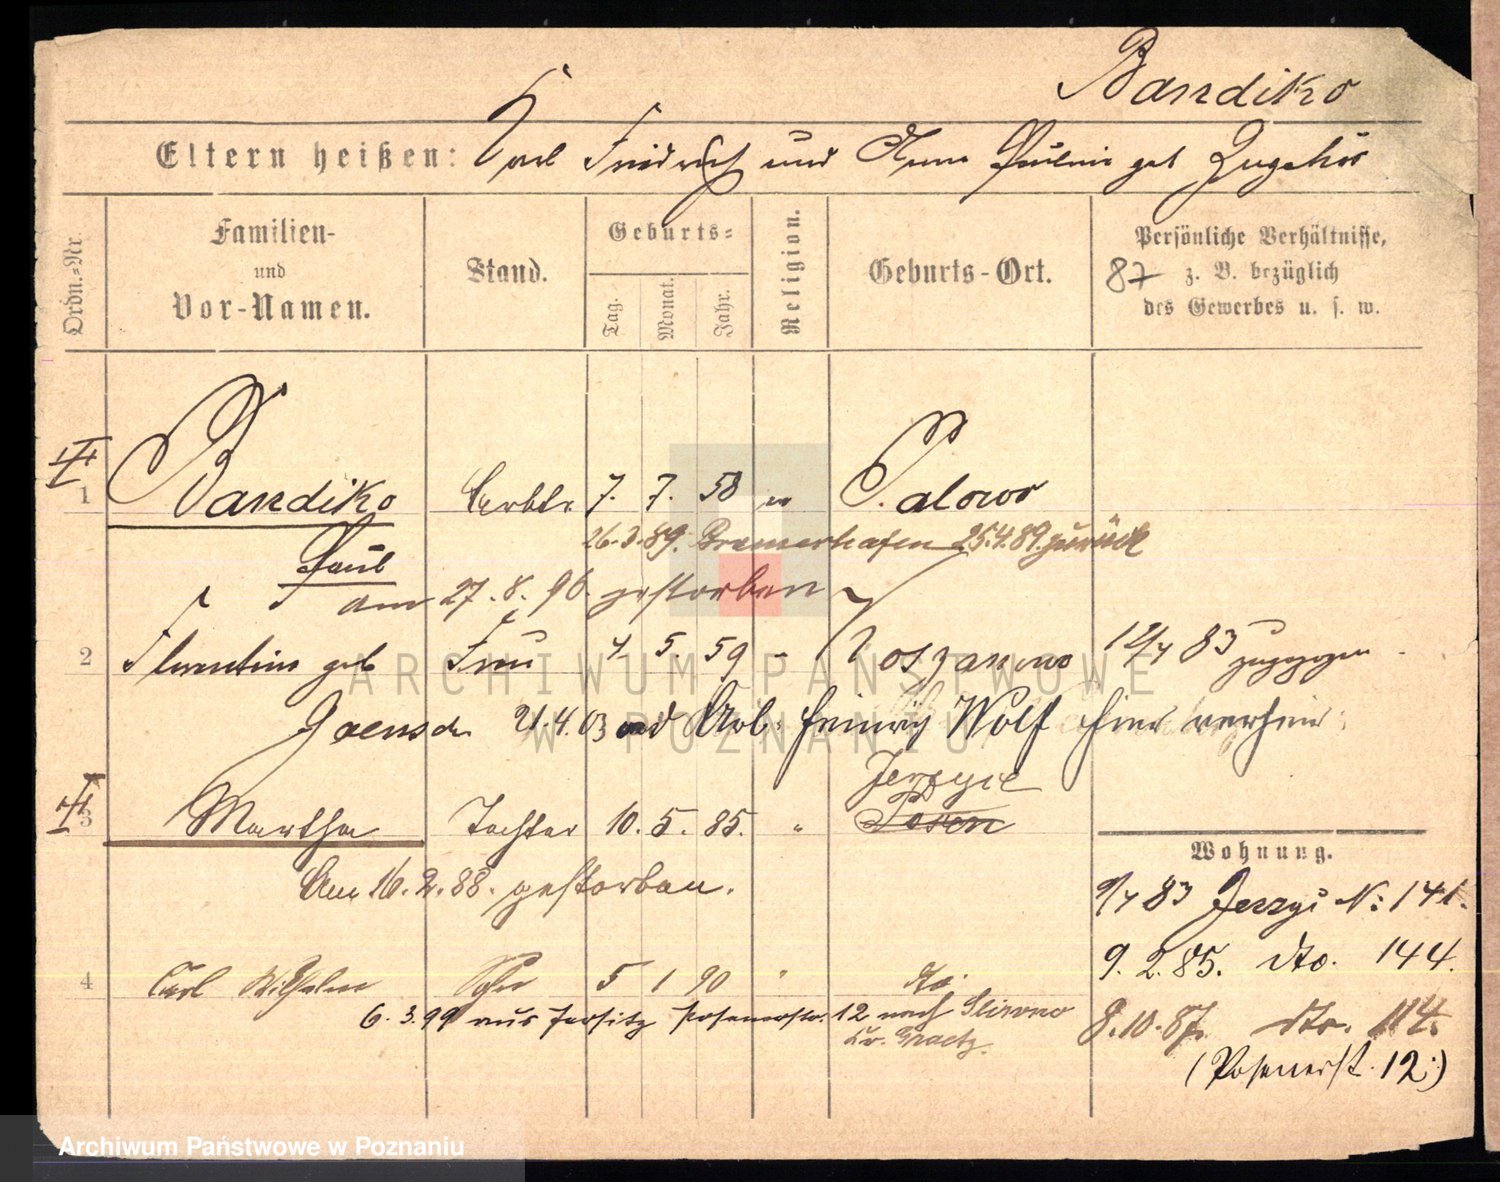 Bandiko
Eltern heißen: Karl Friedrich und Anna Pauline geb Zugehör
Ordn.-Nr.
Familien- und Vor-Namen.
Stand.
Geburts-
Tag. Monat. Jahr.
Religion.
Geburts-Ort.
Persönliche Verhältnisse,
87 z. B. bezüglich
des Gewerbes u. s. w.
1 Bandiko Arbtr 7. 7. 58 Palowo
26.3.89. Bremerhafen 25.4.89. zurück
Paul
am 27.8.96. gestorben
2 Florentine geb Frau 4. 5. 59 - 12/4 83 zugezogen
Jaensch 21.4.03 Arb. Heinrich Wolf hier
Jerzyce
3 Martha Tochter 10. 5. 85. " Posen
Am 16.2.88. gestorben.
Wohnung.
9/4 83 Jerzyce No: 141.
9.2.85. dto. 144.
4 Carl Wilhelm Sohn 5 1 90 " dto.
6.3.99 aus Jersitz Posenerstr. 12 nach
Kr. Graetz.
8.10.87. dto. 114.
(Posenerst. 12.)
ARCHIWUM PAŃSTWOWE
W POZNANIU
Archiwum Państwowe w Poznaniu